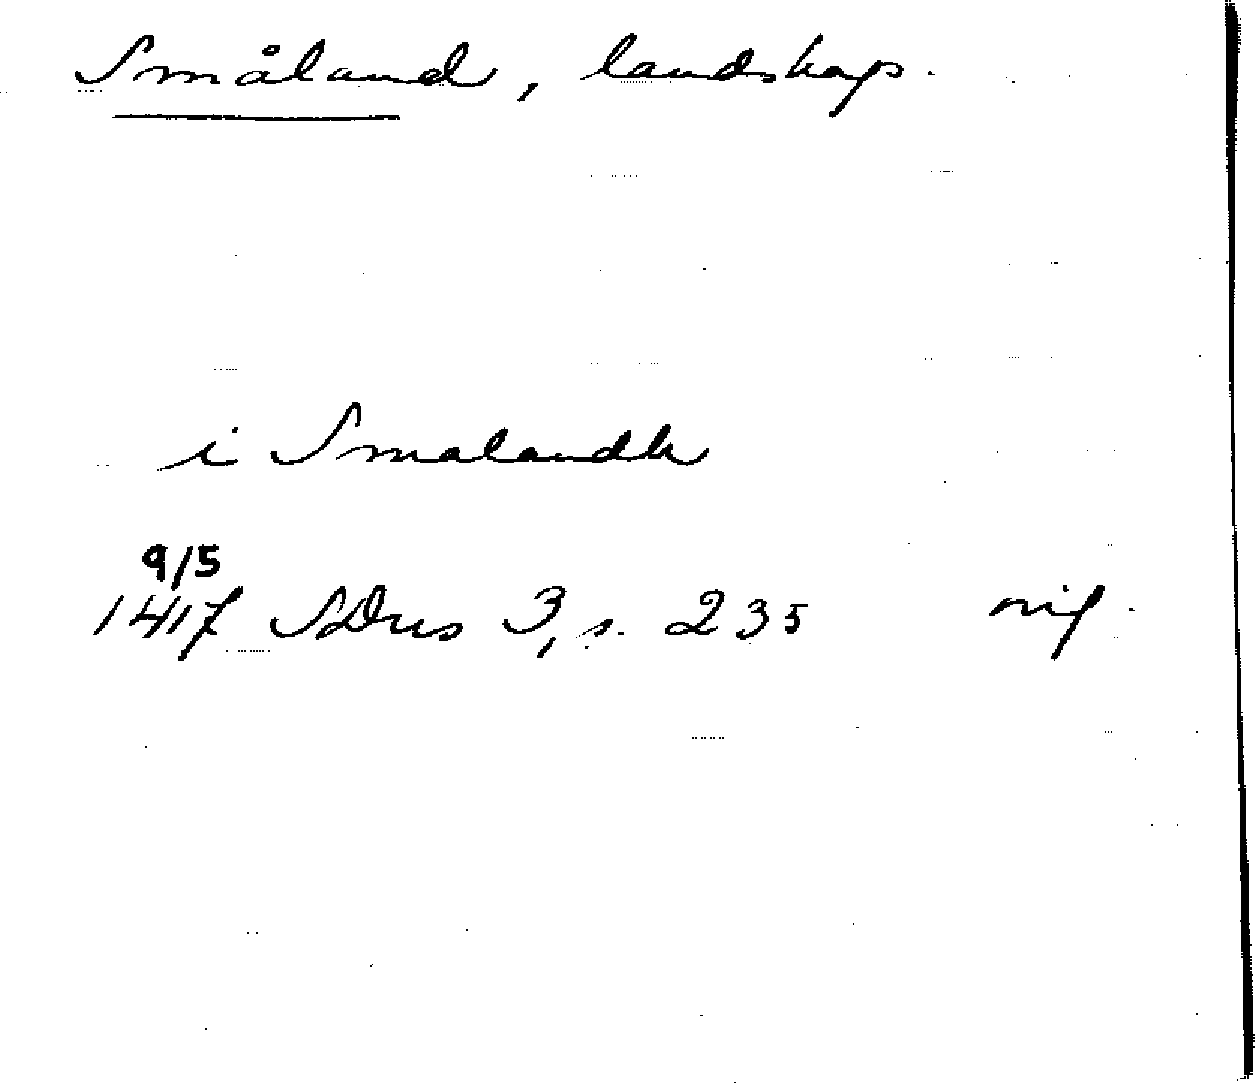 Småland, landskap.
i Smalandh
9/5
1417 SDns 3, s. 235 orig.